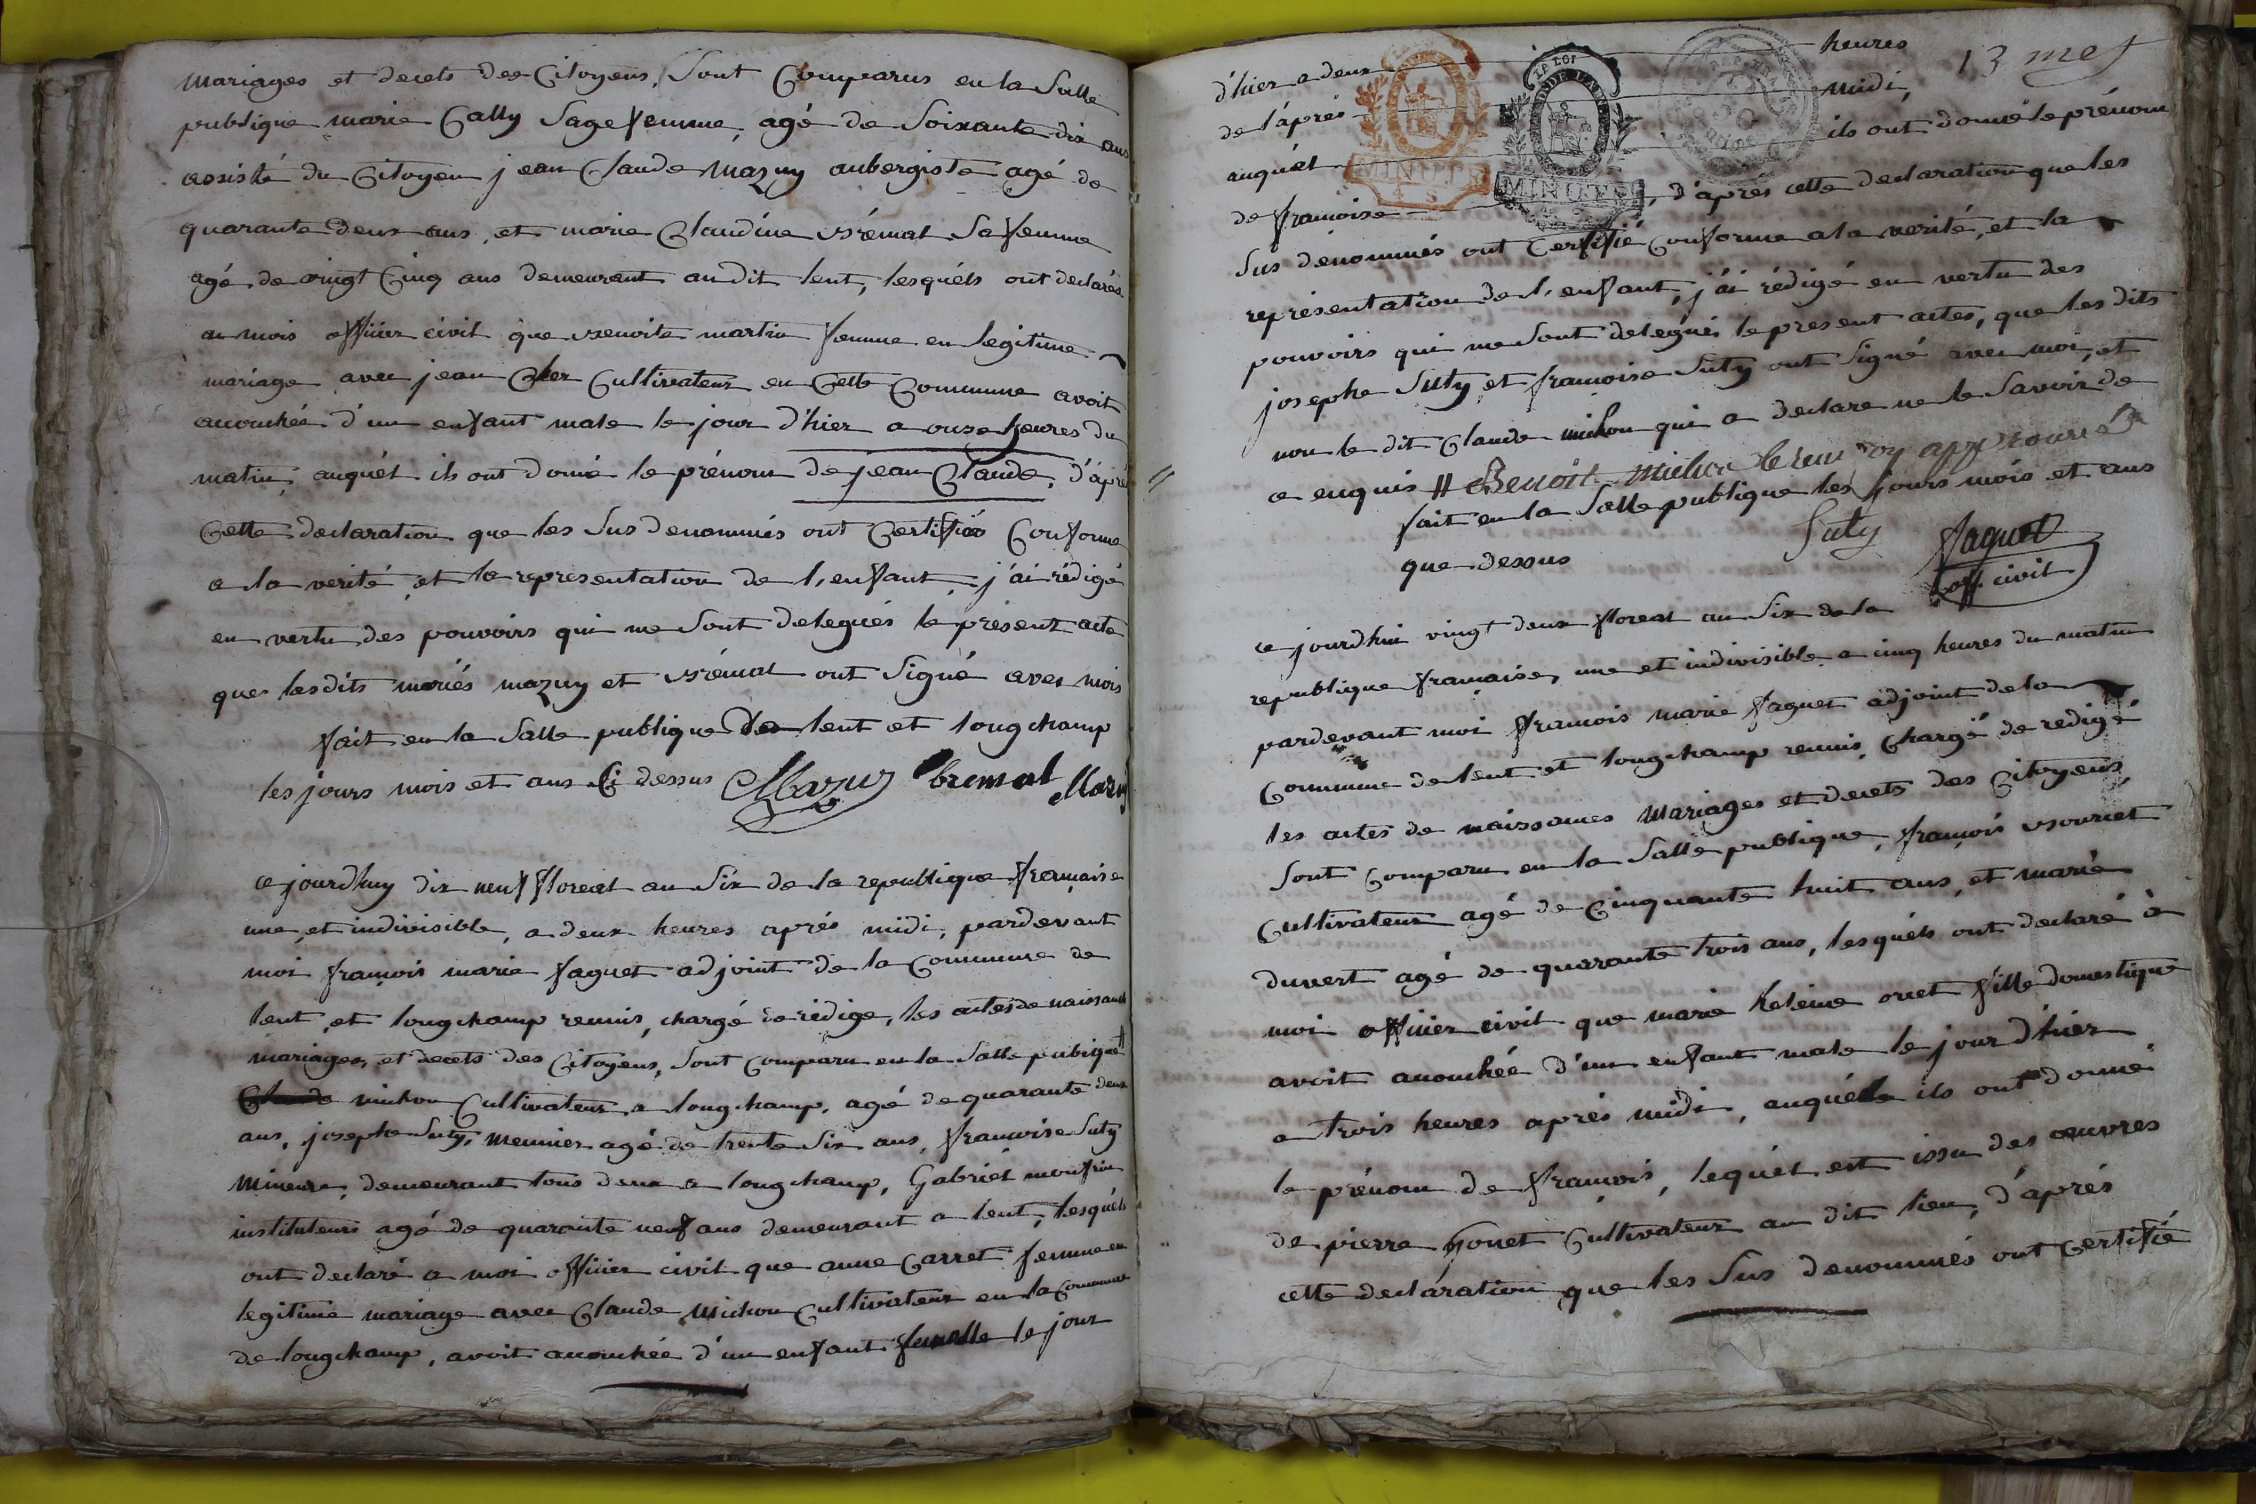 mariages et decets des Citoyens, Sont Comparus en la Salle
publique marie Gally Sage femme, agé de Soixante dix ans
assisté du Citoyen jean Claude Mazuy aubergiste agé de
quarante deux ans, et marie Claudine Brémal Sa femme
agé de vingt Cinq ans demeurant au dit lent, lesquéls ont declarés
a mois officier civil que Benoite martin femme en legitime
mariage avec jean Cultivateur en Cette Commune avoit
accouchée d'un enfant male le jour d'hier a onze heures du
matin, auquél ils ont donné le prénom de jean Claude, d'âpré
Cette declaration que les Sus denommés ont Certifiés Conforme
a la verité, et la representation de l'enfant, j'ai rédigé
en vertu des pouvoirs qui me Sont delegués le présent acte
que lesdits mariés mazuy et Brémal ont Signé avec mois
fait en la Salle publique de lent et longchamp
les jours mois et ans Ci dessus Mazuy bremal Mazuy
ce jourdhuy dix neuf floreal an Six de la republique française
une, et indivisible, a deux heures aprés midi, pardevant
moi françois marie faguet adjoint de la Commune de
lent, et longchamp reunis, chargé de rédige, les actes de naissance
mariages, et decets des Citoyens, Sont comparu en la Salle pubique
Claude michon Cultivateur a longchamp, agé de quarante deux
ans, josephe Suty, meunier agé de trente Six ans, françoise Suty
mineure, demeurant tous deux a longchamp, Gabriél monfrin
instituteur agé de quarante neuf ans demeurant a lent, lesquéls
ont declaré a moi officier civil que anne Carret femme en
legitime mariage avec Claude Michon Cultivateur en la Commune
de longchamp, avoit accouchée d'un enfant femelle le jour
13 me f
d'hier a deux heures
de l'aprés midi,
auquél ils ont donné le prénom
de françoise, d'aprés cette declaration que les
Sus dénommés ont Certifié Conforme a la verité, et la
représentation de l'enfant, j'ai rédigé en vertu des
pouvoirs qui me Sont delegués le present actes, que les dits
josephe Suty et françoise Suty ont Signé avec moi, et
non le dit Claude michon qui a declare ne le Savoir de
ce enquis // Benoit michon le renvoy approuvé
fait en la Salle publique les jours mois et ans
que dessus Suty faguet
off. civil
ce jourdhui vingt deux floreal an Six de la
republique française, une et indivisible a cinq heures du matin
pardevant moi françois marie faguet adjoint de la
Commune de lent et longchamp reunis, Chargé de redigé
les actes de naissances mariages et decets des Citoyens
Sont Comparu en la Salle publique, françois Bourret
Cultivateur agé de Cinquante huit ans, et marie
duvert agé de quarante trois ans, lesquéls ont declaré à
moi officier civil que marie heléine ouet fille domestique
avoit accouchée d'un enfant male le jour d'hier
a trois heures aprés midi, auquél ils ont donné
le prénom de françois, lequél est issu des œuvres
de pierre gonet Cultivateur au dit lieu, d'aprés
cette declaration que les Sus denommés ont Certifié
LE LOI
MINUTE
MINUTE